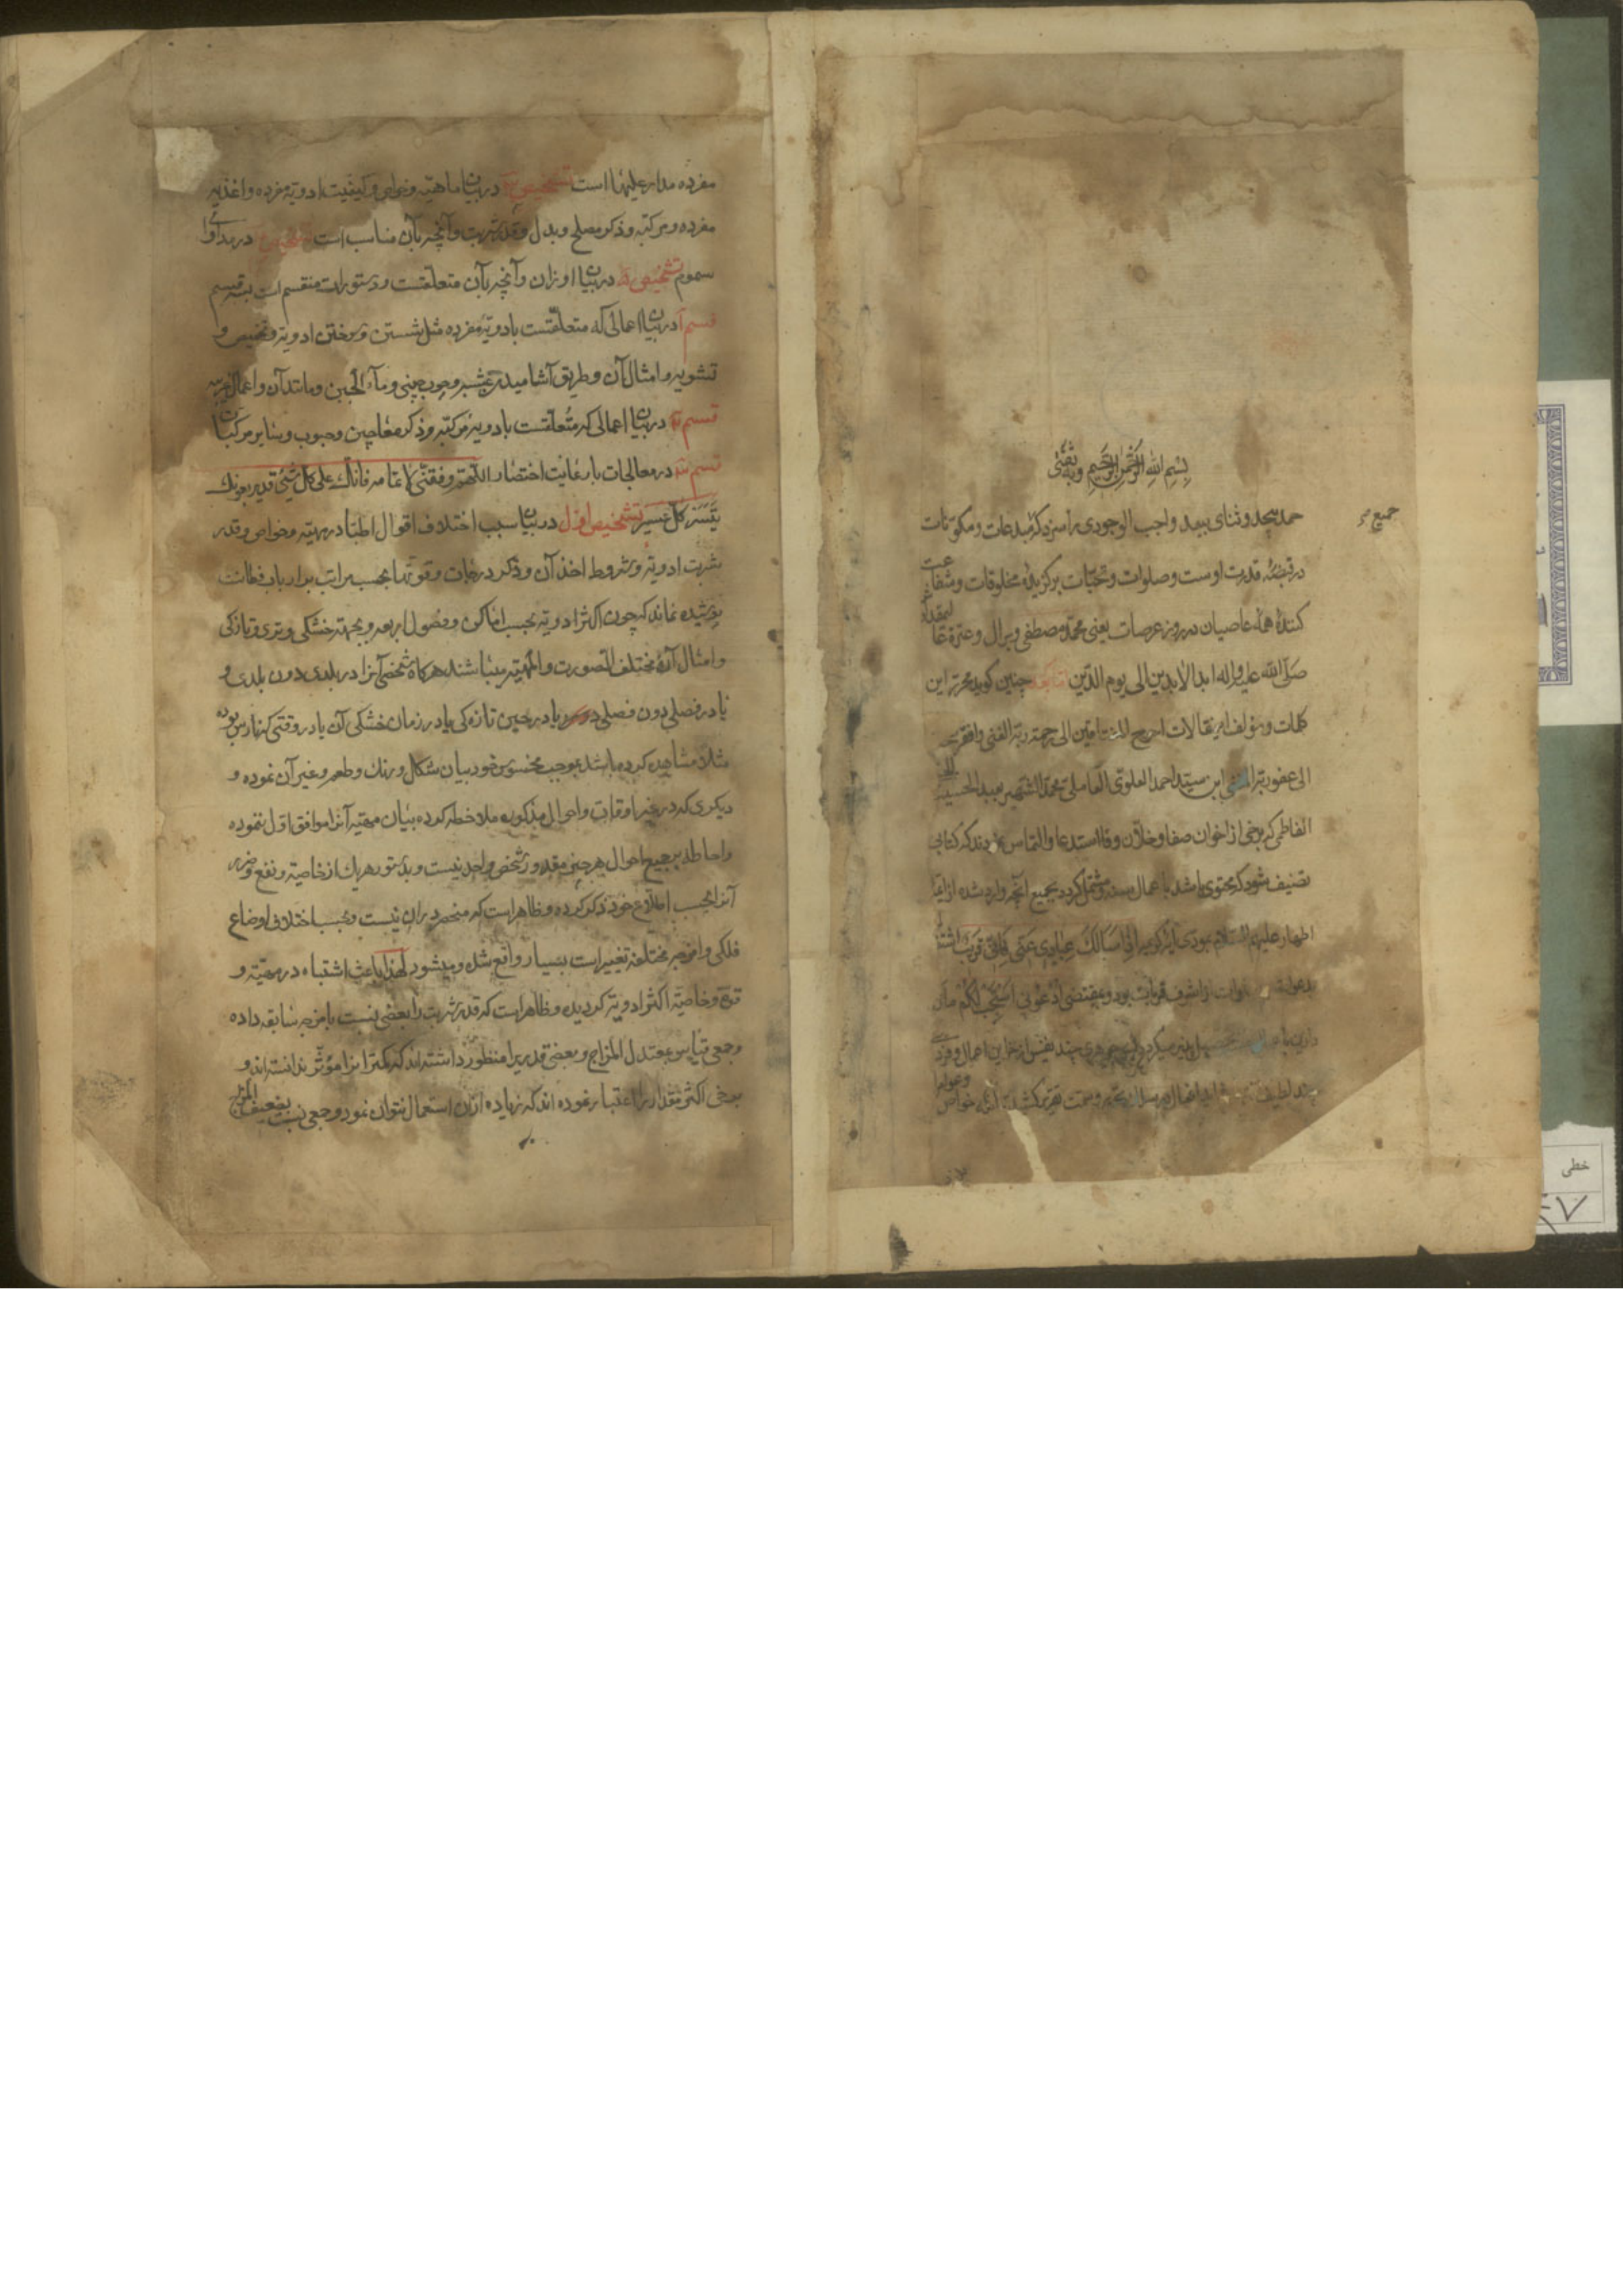 بسم الله الرحمن الرحیم وبه ثقتی
حمد بیحد و ثنای بیعد واجب الوجودی را سزد که مبدعات و مکونات
جمیع
در قبضهٔ قدرت اوست و صلوات و تحیات برگزیدهٔ مخلوقات و شفاعت
کنندهٔ همه عاصیان در روز عرصات یعنی محمد مصطفی و برال و عترة
صلی الله علیه و اله ابد الابدین الی یوم الدین اما بعد چنین گوید محرر این
کلمات و مؤلف این مقالات احوج الی رحمة ربه الغنی و افقر
الی عفو ربه ابن سید احمد العلوی العاملی محمد الشهیر بعبد الحسیب
الفاطمی که برخی از اخوان صفا و خلان وفا استدعا و التماس نمودند که کتابی
تصنیف شود که محتوی باشد با عمال و مشتمل گردد بجمیع آنچه وارد شده از ائمهٔ
اطهار علیهم السلام بودی کریمه اذا سألک عبادی عنی فانی قریب
بدعوات شرف قربات بود و بمقتضی ادعونی استجب لکم
مفرده مدار علیها است تشخیص در بیان ماهیة و خواص و کیفیت ادویهٔ مفرده و اغذیهٔ
مفرده و مرکبه و ذکر مصلح و بدل و قدر شربت و آنچه بآن مناسب است تشخیص در مداوای
سموم تشخیص در بیان اوزان و آنچه بآن متعلقست و دستورات منقسم است بسه قسم
قسم آ در بیان اعمالی که متعلقست بادویهٔ مفرده مثل شستن و سوختن ادویه و تحمیص و
تشویه و امثال آن و طریق آشامیدن عشبه و چوب چینی و مآء الجبن و مانند آن و اعمال غریبه
قسم در بیان اعمالی که متعلقست بادویهٔ مرکبه و ذکر معاجین و حبوب و سایر مرکبات
قسم در معالجات با رعایت اختصار اللهم وفقنی لاتمامه فانک علی کل شیئ قدیر بعونک
یتیسر کل عسیر تشخیص اول در بیان سبب اختلاف اقوال اطبا در مهیة و خواص و قدر
شربت ادویه و شروط اخذ آن و ذکر درجات و قوتها بحسب مراتب بدار باب فطانت
پوشیده نماند که چون اکثر ادویه بحسب اماکن و فصول اربعه و بجهة خشکی و تری و تازگی
و امثال آن مختلف الصورت و المهیة میباشند هرگاه شخصی آنرا در بلدی دون بلدی و
یا در فصلی دون فصلی یا در حین تازه کی یا در زمان خشکی آن یا در وقتی که نارس بوده
مثلا مشاهده کرده باشد بموجب محسوس خود بیان شکل و رنک و طعم و غیر آن نموده و
دیکری که در غیر اوقات و احوال مذکوره ملاحظه کرده بیان مهیة آنرا موافق اول ننموده
و احاطه بجمیع احوال هر چیز مقدور شخص واحد نیست و بدستور هریک از خاصیة و نفع و ضرر
آنرا بحسب اطلاع خود ذکر کرده و ظاهر است که منحصر در آن نیست و بحسب اختلاف اوضاع
فلکی و امزجهٔ مختلفه تغییر است بسیار واقع شده و میشود لهذا باعث اشتباه در مهیة و
قوة و خاصیة اکثر ادویه کردیده و ظاهر است که قدر شربت را بعضی نسبت بامزجه سابقه داده
و جمعی قیاس بمعتدل المزاج و بعضی قدریرا منظور داشته اند که کمتر از انرا مؤثر ندانسته اند و
بعضی اکثر مقدار را اعتبار نموده اند که زیاده از آن استعمال نتوان نمود و جمعی نسبت بضعیف المزاج
خطی